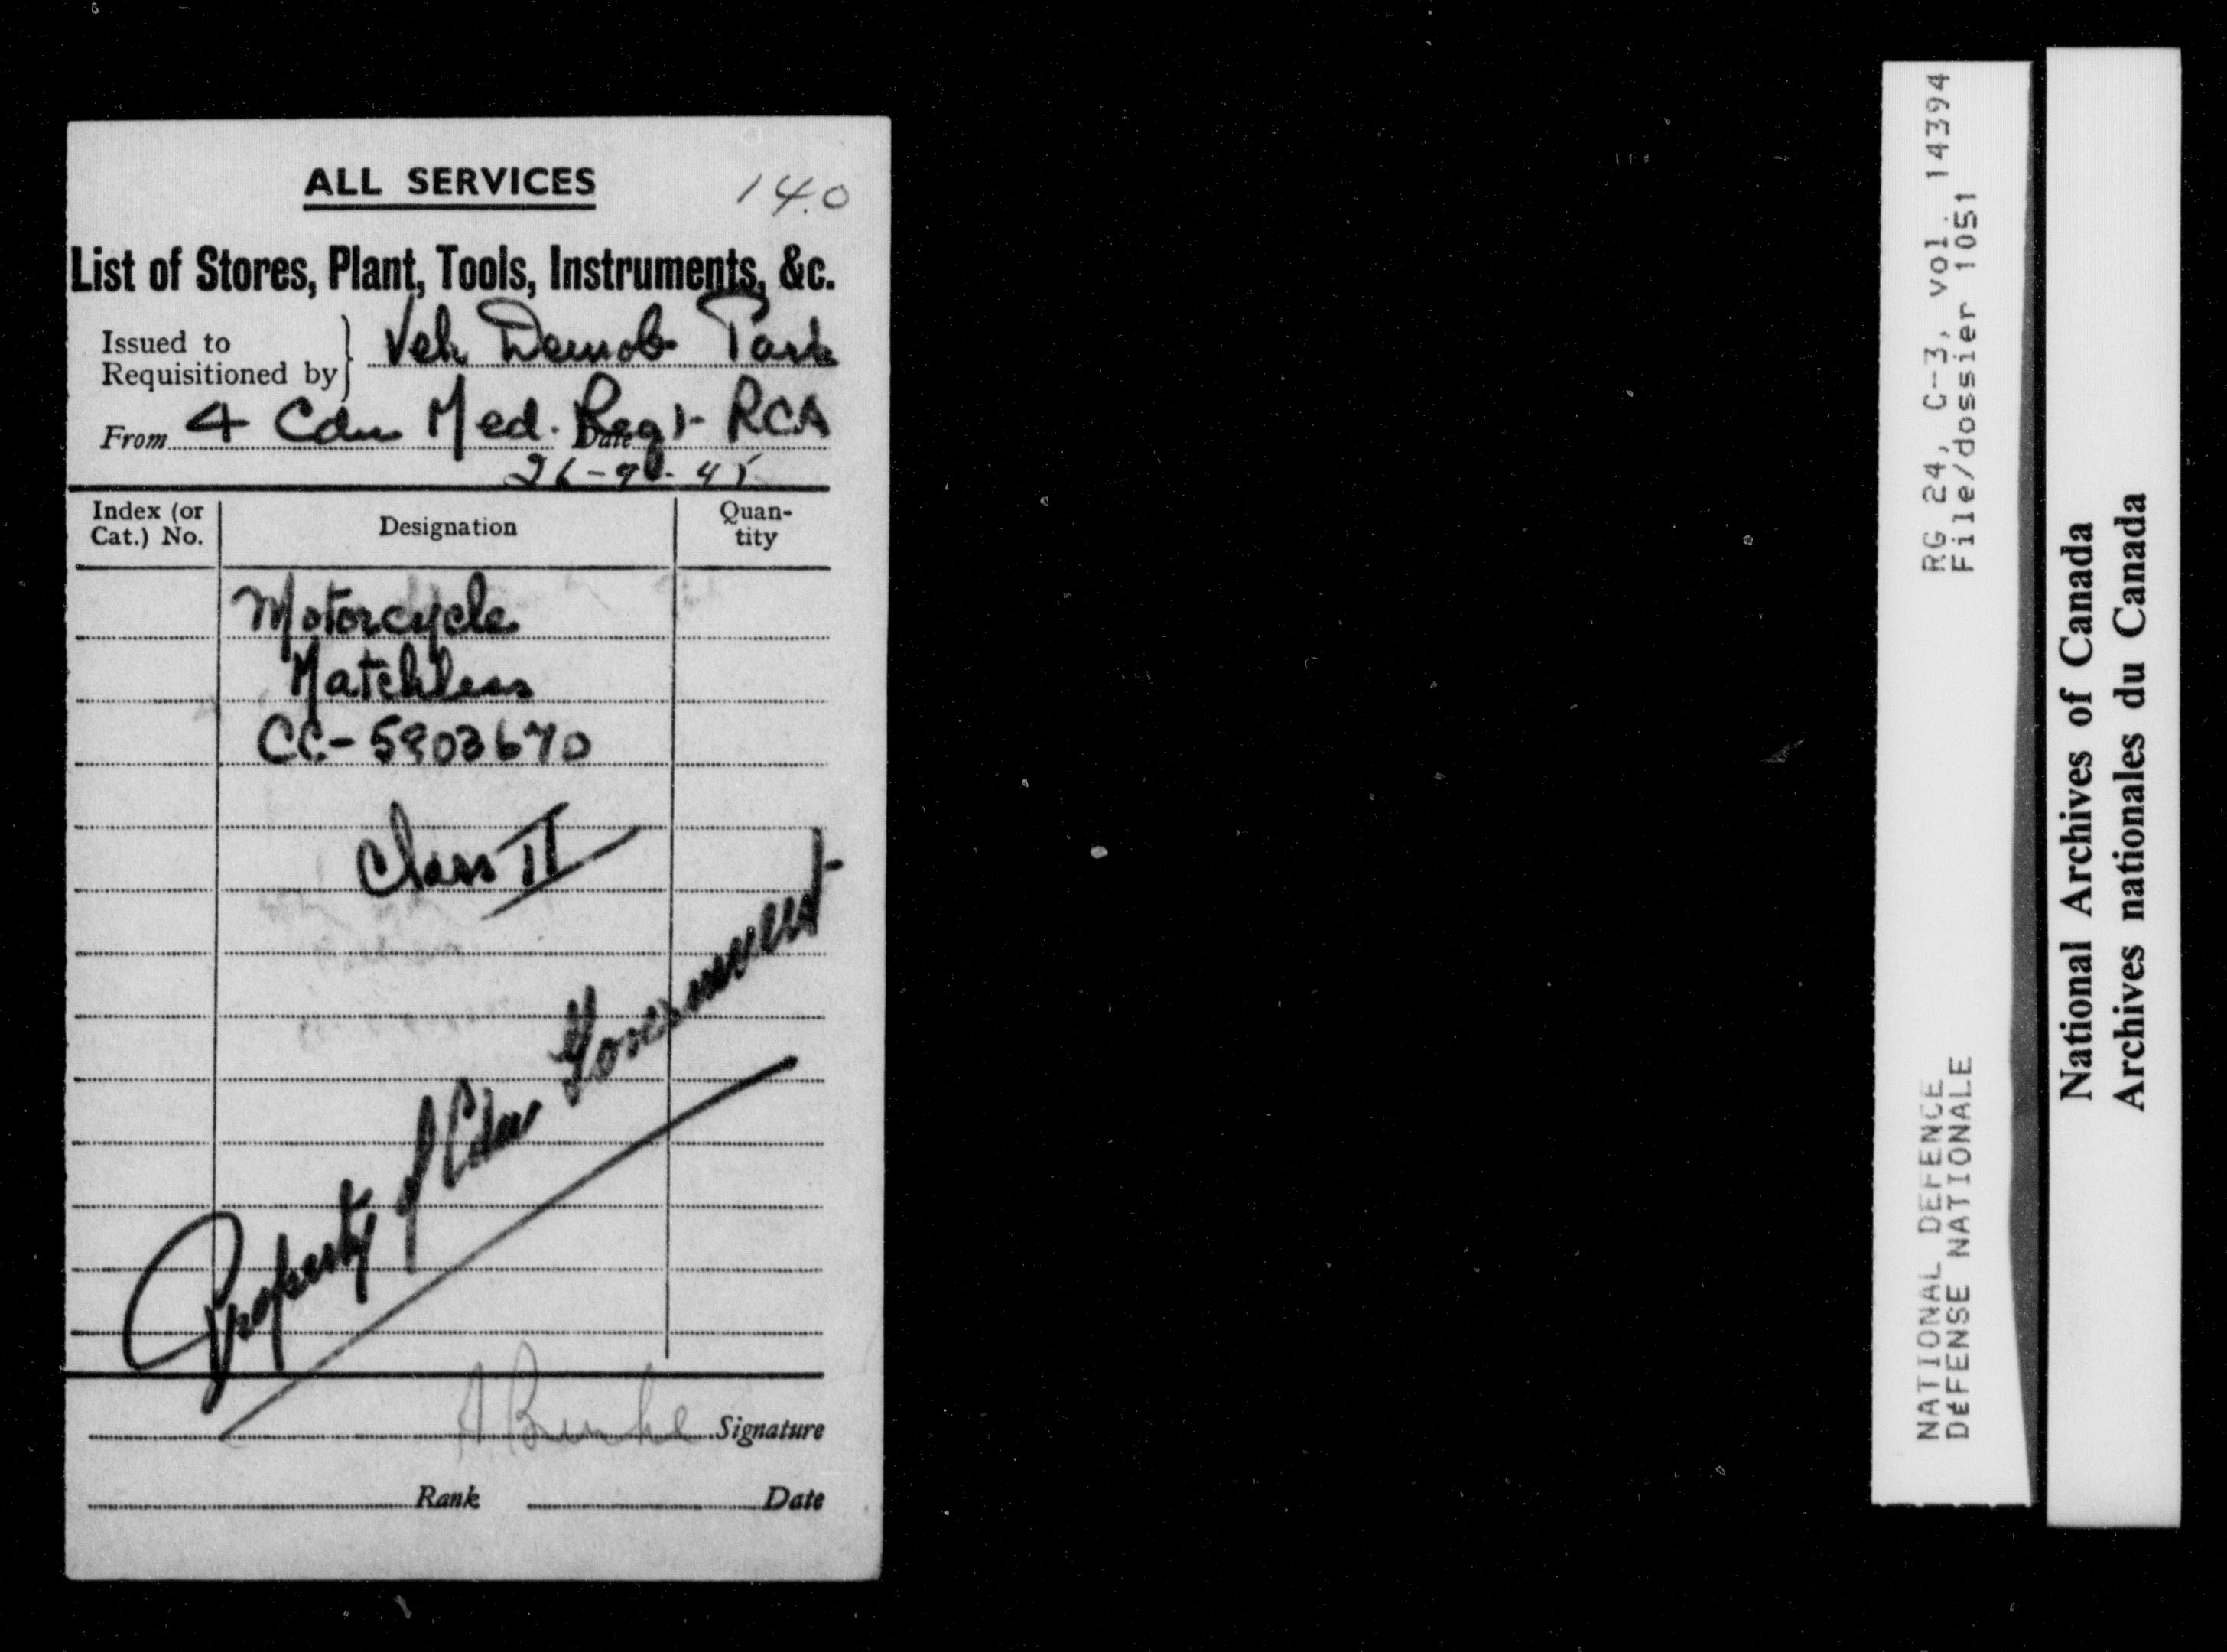 ALL SERVICES
14.0
List of Stores, Plant, Tools, Instruments, &c.
Issued to
Requisitioned by } Veh Demob Park
From 4 Cdn Med. Regt RCA
Date
26-9-45
Index (or Cat.) No. Designation Quan-tity
Motorcycle
Matchless
CC-5903670
Class II
Property of Cdn Government
A Burke Signature
Rank Date
RG 24, C-3, vol. 14394
File/dossier 1051
NATIONAL DEFENCE
DÉFENSE NATIONALE
National Archives of Canada
Archives nationales du Canada